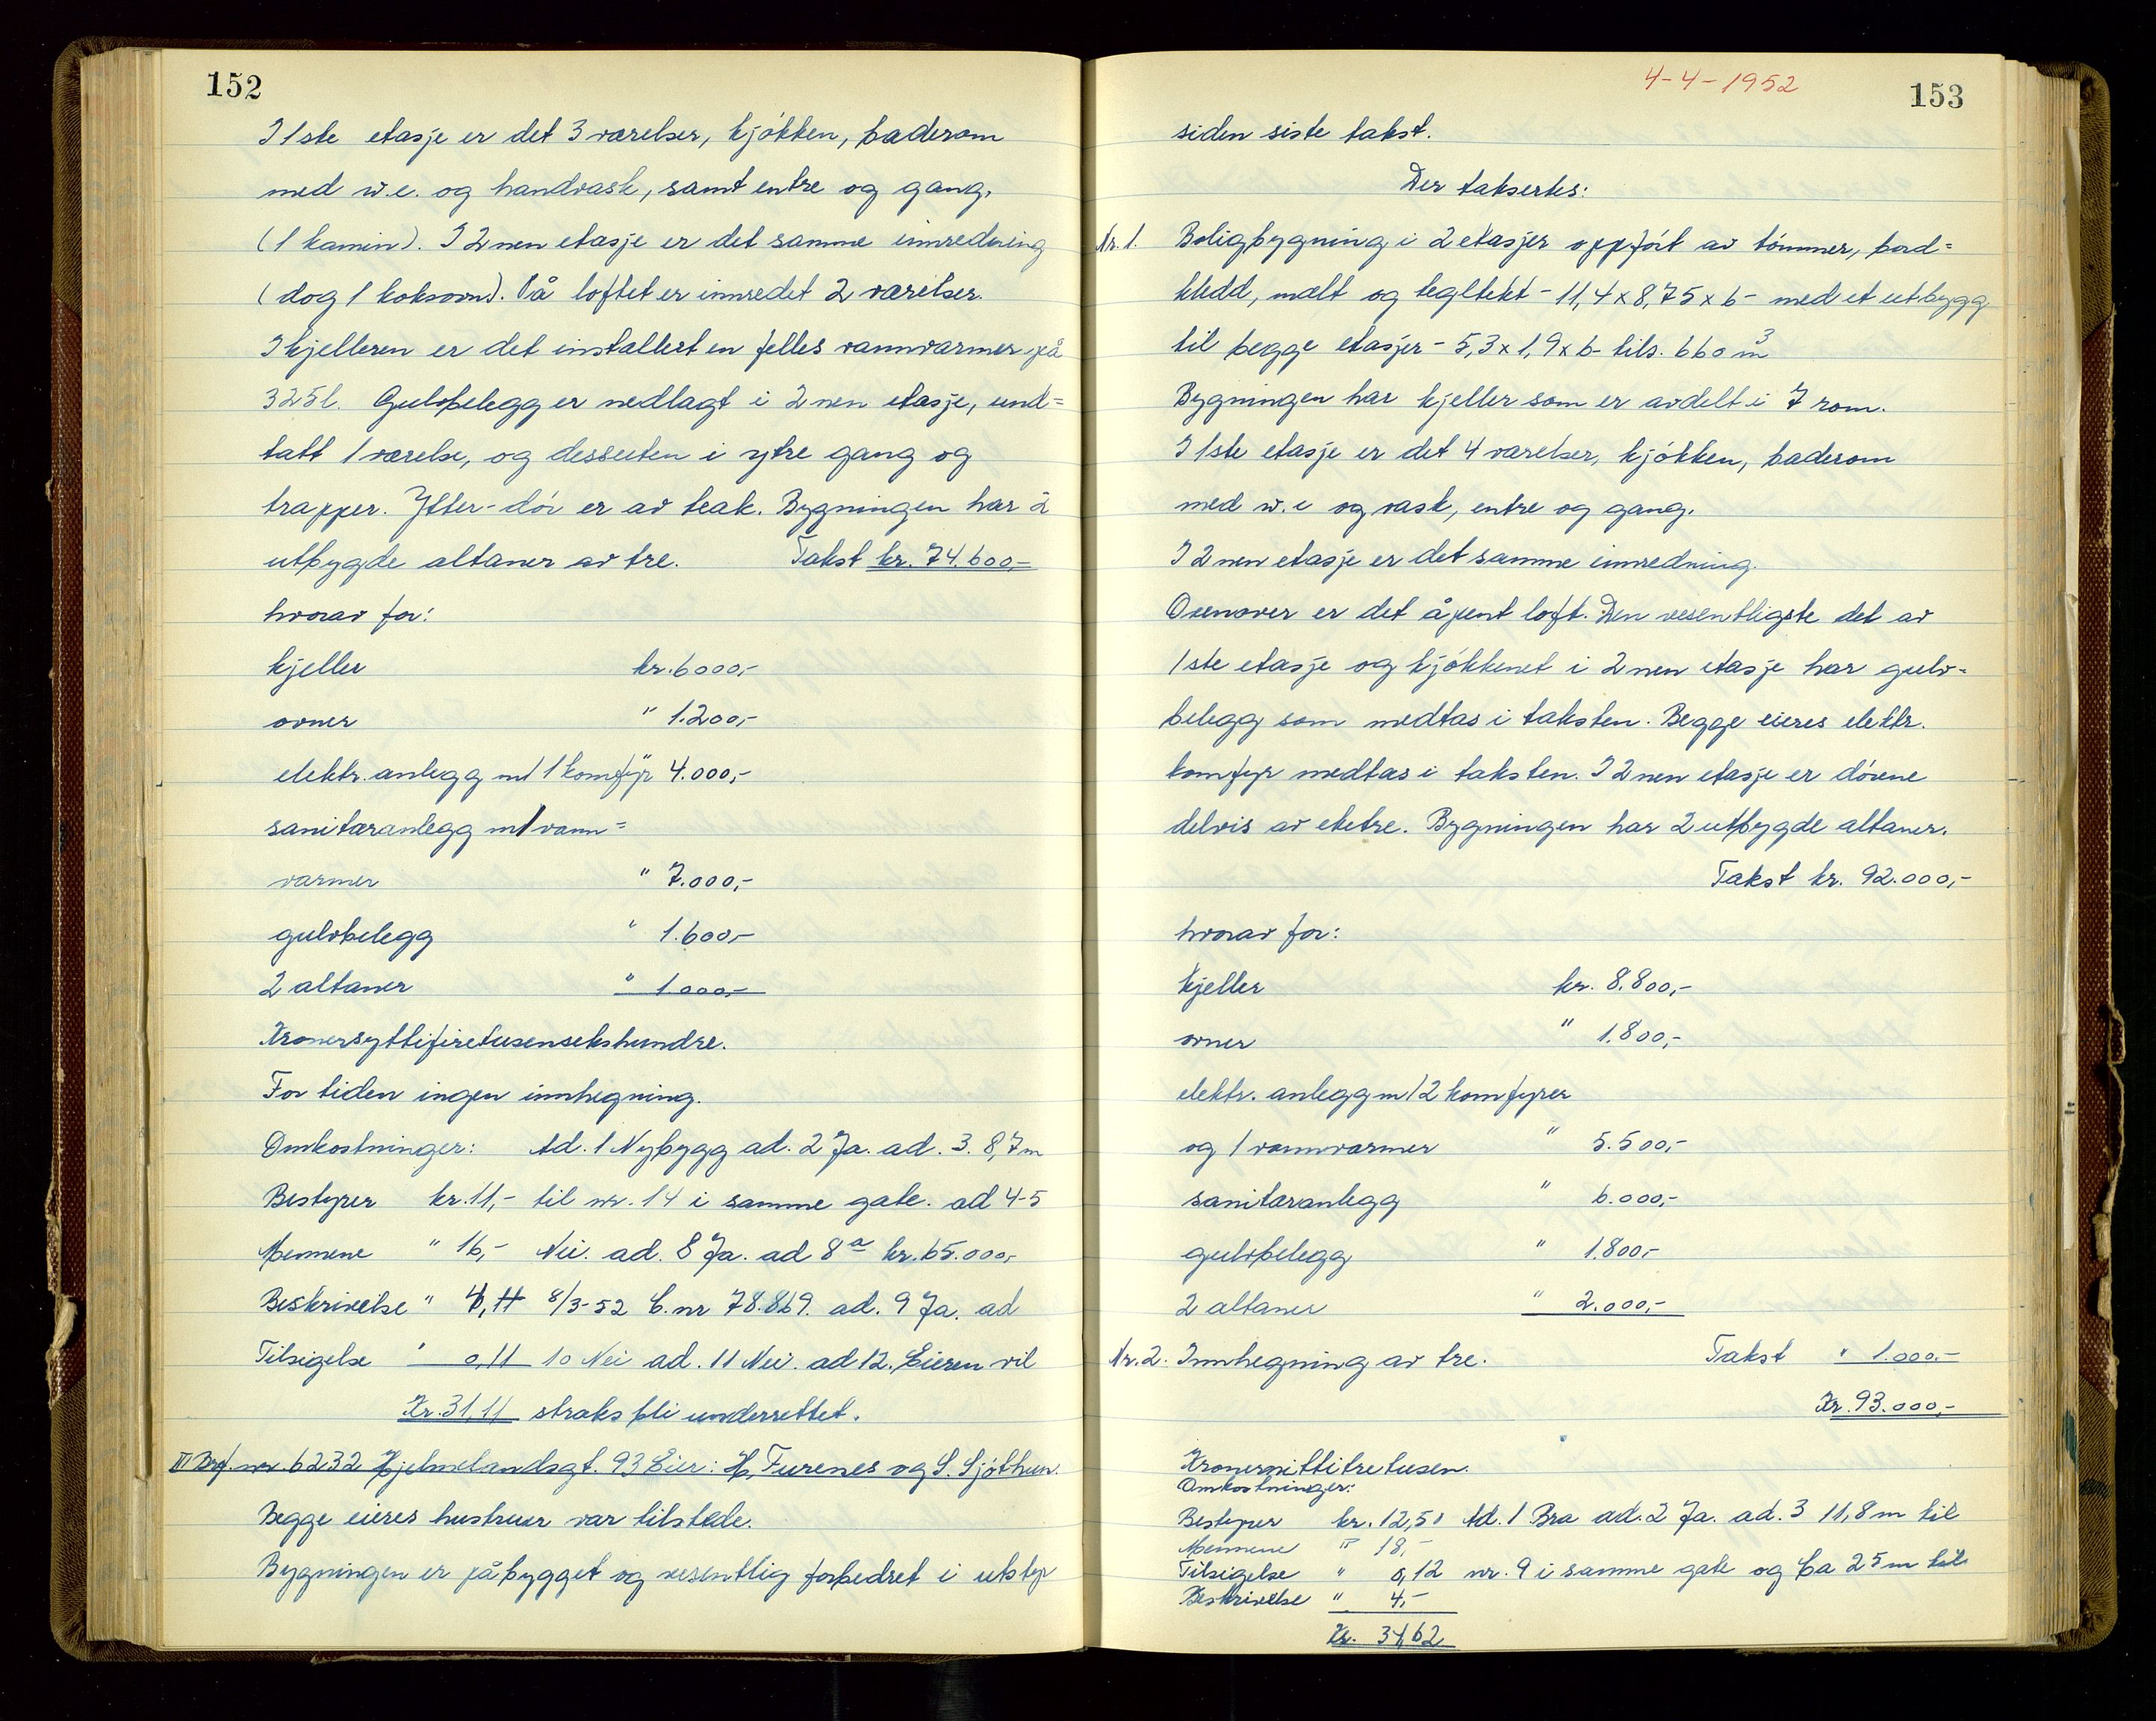 152
I 1ste etasje er det 3 værelser, kjøkken, baderom
med w.c. og handvask, samt entre og gang.
(1 kamin). I 2nen etasje er det samme innredning
(dog 1 koksovn). På loftet er innredet 2 værelser.
I kjelleren er det installert en felles vannvarmer på
325 l. Gulvbelegg er nedlagt i 2nen etasje, und=
tatt 1 værelse, og dessuten i ytre gang og
trapper. Ytter-dør er av teak. Bygningen har 2
utbygde altaner av tre. Takst kr. 74.600,=
hvorav for:
kjeller kr. 6000,-
ovner " 1.200,-
elektr. anlegg m/ 1 komfyr " 4.000,-
sanitæranlegg m/ vann=
varmer " 7.000,-
gulvbelegg " 1.600,-
2 altaner " 1.000,-
Kronersyttifiretusensekshundre.
For tiden ingen innhegning.
Omkostninger: Ad. 1 Nybygg ad. 2 Ja. ad. 3. 8,7 m
Bestyrer kr. 11,- til nr. 14 i samme gate. ad 4-5
Mennene " 16,- Nei. ad. 8 Ja. ad 8a kr. 65.000,-
Beskrivelse " 4,- 8/3-52 C. nr 78.869. ad. 9 Ja. ad
Tilsigelse " 0,11 10 Nei ad. 11 Nei. ad 12. Eieren vil
Kr. 31,11 straks bli underrettet.
III Brf. nr. 6232 Hjelmelandsgt. 93 Eier: H. Furenes og S. Sjøthun.
Begge eieres hustruer var tilstede.
Bygningen er påbygget og vesentlig forbedret i utstyr
4-4-1952
153
siden siste takst.
Der taksertes:
Nr. 1. Boligbygning i 2 etasjer oppført av tømmer, bord=
kledd, malt og tegltekt - 11,4 x 8,75 x 6 - med et utbygg
til begge etasjer - 5,3 x 1,9 x 6 - tils. 660 m3
Bygningen har kjeller som er avdelt i 7 rom.
I 1ste etasje er det 4 værelser, kjøkken, baderom
med w.c og vask, entre og gang.
I 2nen etasje er det samme innredning.
Ovenover er det åpent loft. Den vesentligste del av
1ste etasje og kjøkkenet i 2nen etasje har gulv=
belegg som medtas i taksten. Begge eieres elektr.
komfyr medtas i taksten. I 2nen etasje er dørene
delvis av eketre. Bygningen har 2 utbygde altaner.
Takst kr. 92.000,-
hvorav for:
kjeller kr. 8.800,-
ovner " 1.800,-
elektr. anlegg m/ 2 komfyrer
og 1 vannvarmer " 5.500,-
sanitæranlegg " 6.000,-
gulvbelegg " 1.800,-
2 altaner " 2.000,-
Nr. 2. Innhegning av tre. Takst " 1.000.-
Kr. 93.000,-
Kronernittitretusen.
Omkostninger:
Bestyrer kr. 12,50 Ad. 1 Bra ad. 2 Ja. ad. 3 11,8 m til
Mennene " 18,-
Tilsigelse " 0,12 nr. 9 i samme gate og ca 25 m til
Beskrivelse " 4,-
Kr. 34,62